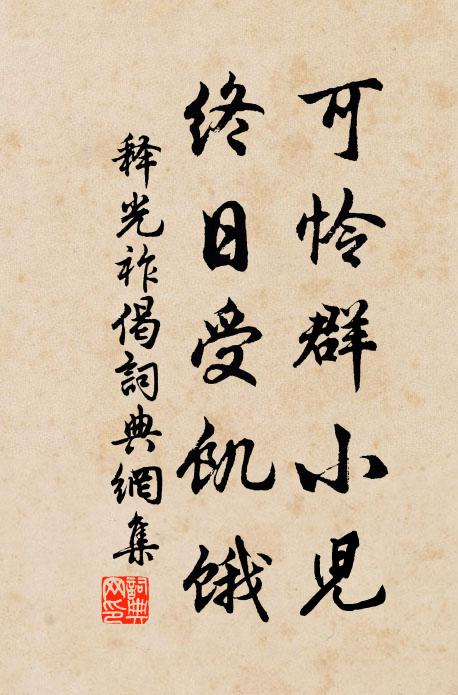 可怜群小児
终日受飢饿
释光祚偈詞典網集
詞典网印